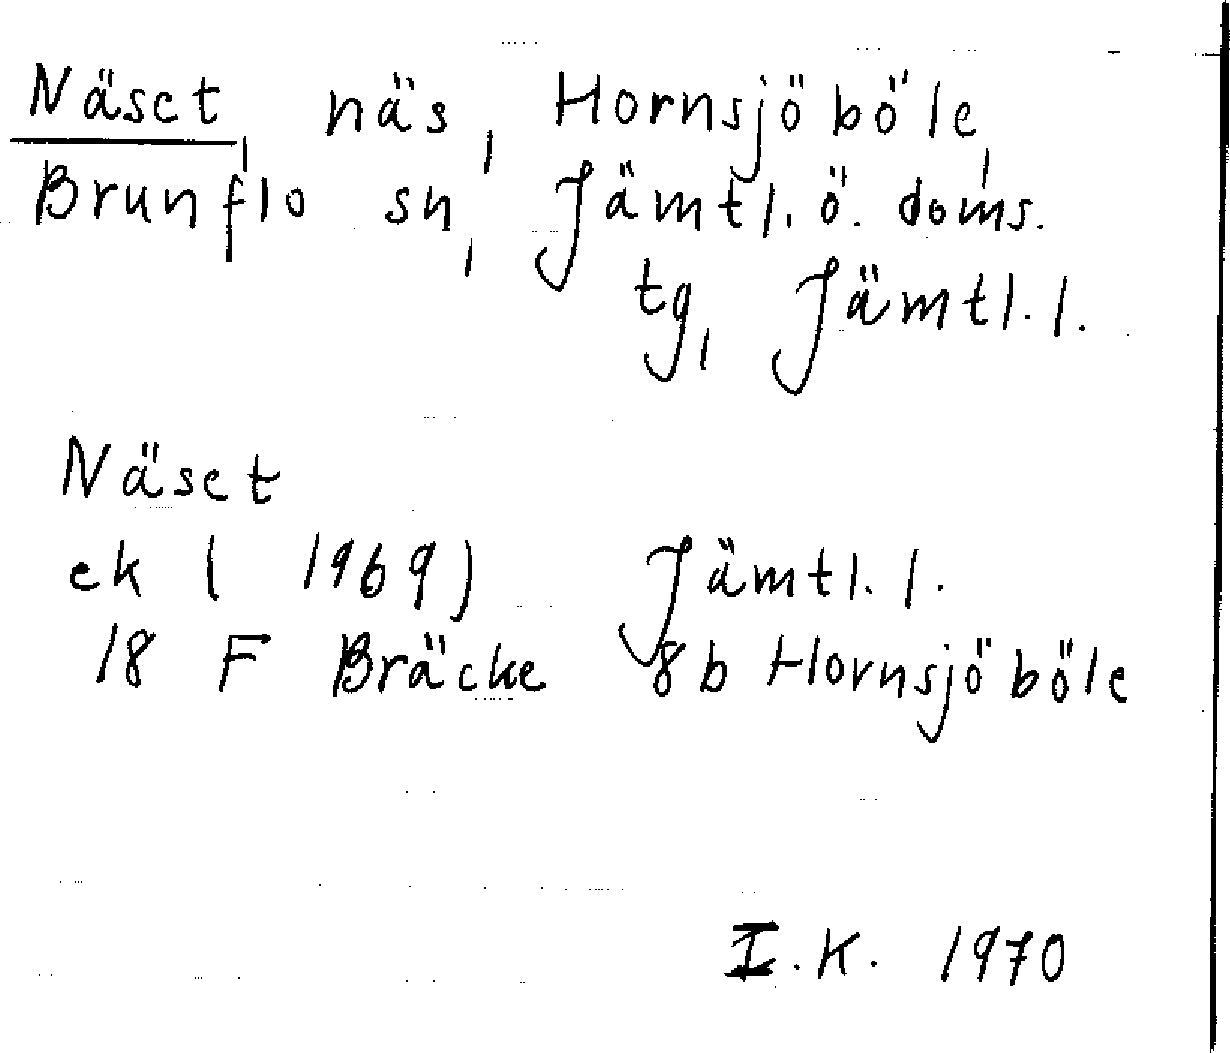 Näset, näs, Hornsjöböle,
Brunflo sn, Jämtl. ö. doms.
tg, Jämtl. l.
Näset
ek ( 1969) Jämtl. l.
18 F Bräcke 8b Hornsjöböle
I.K. 1970